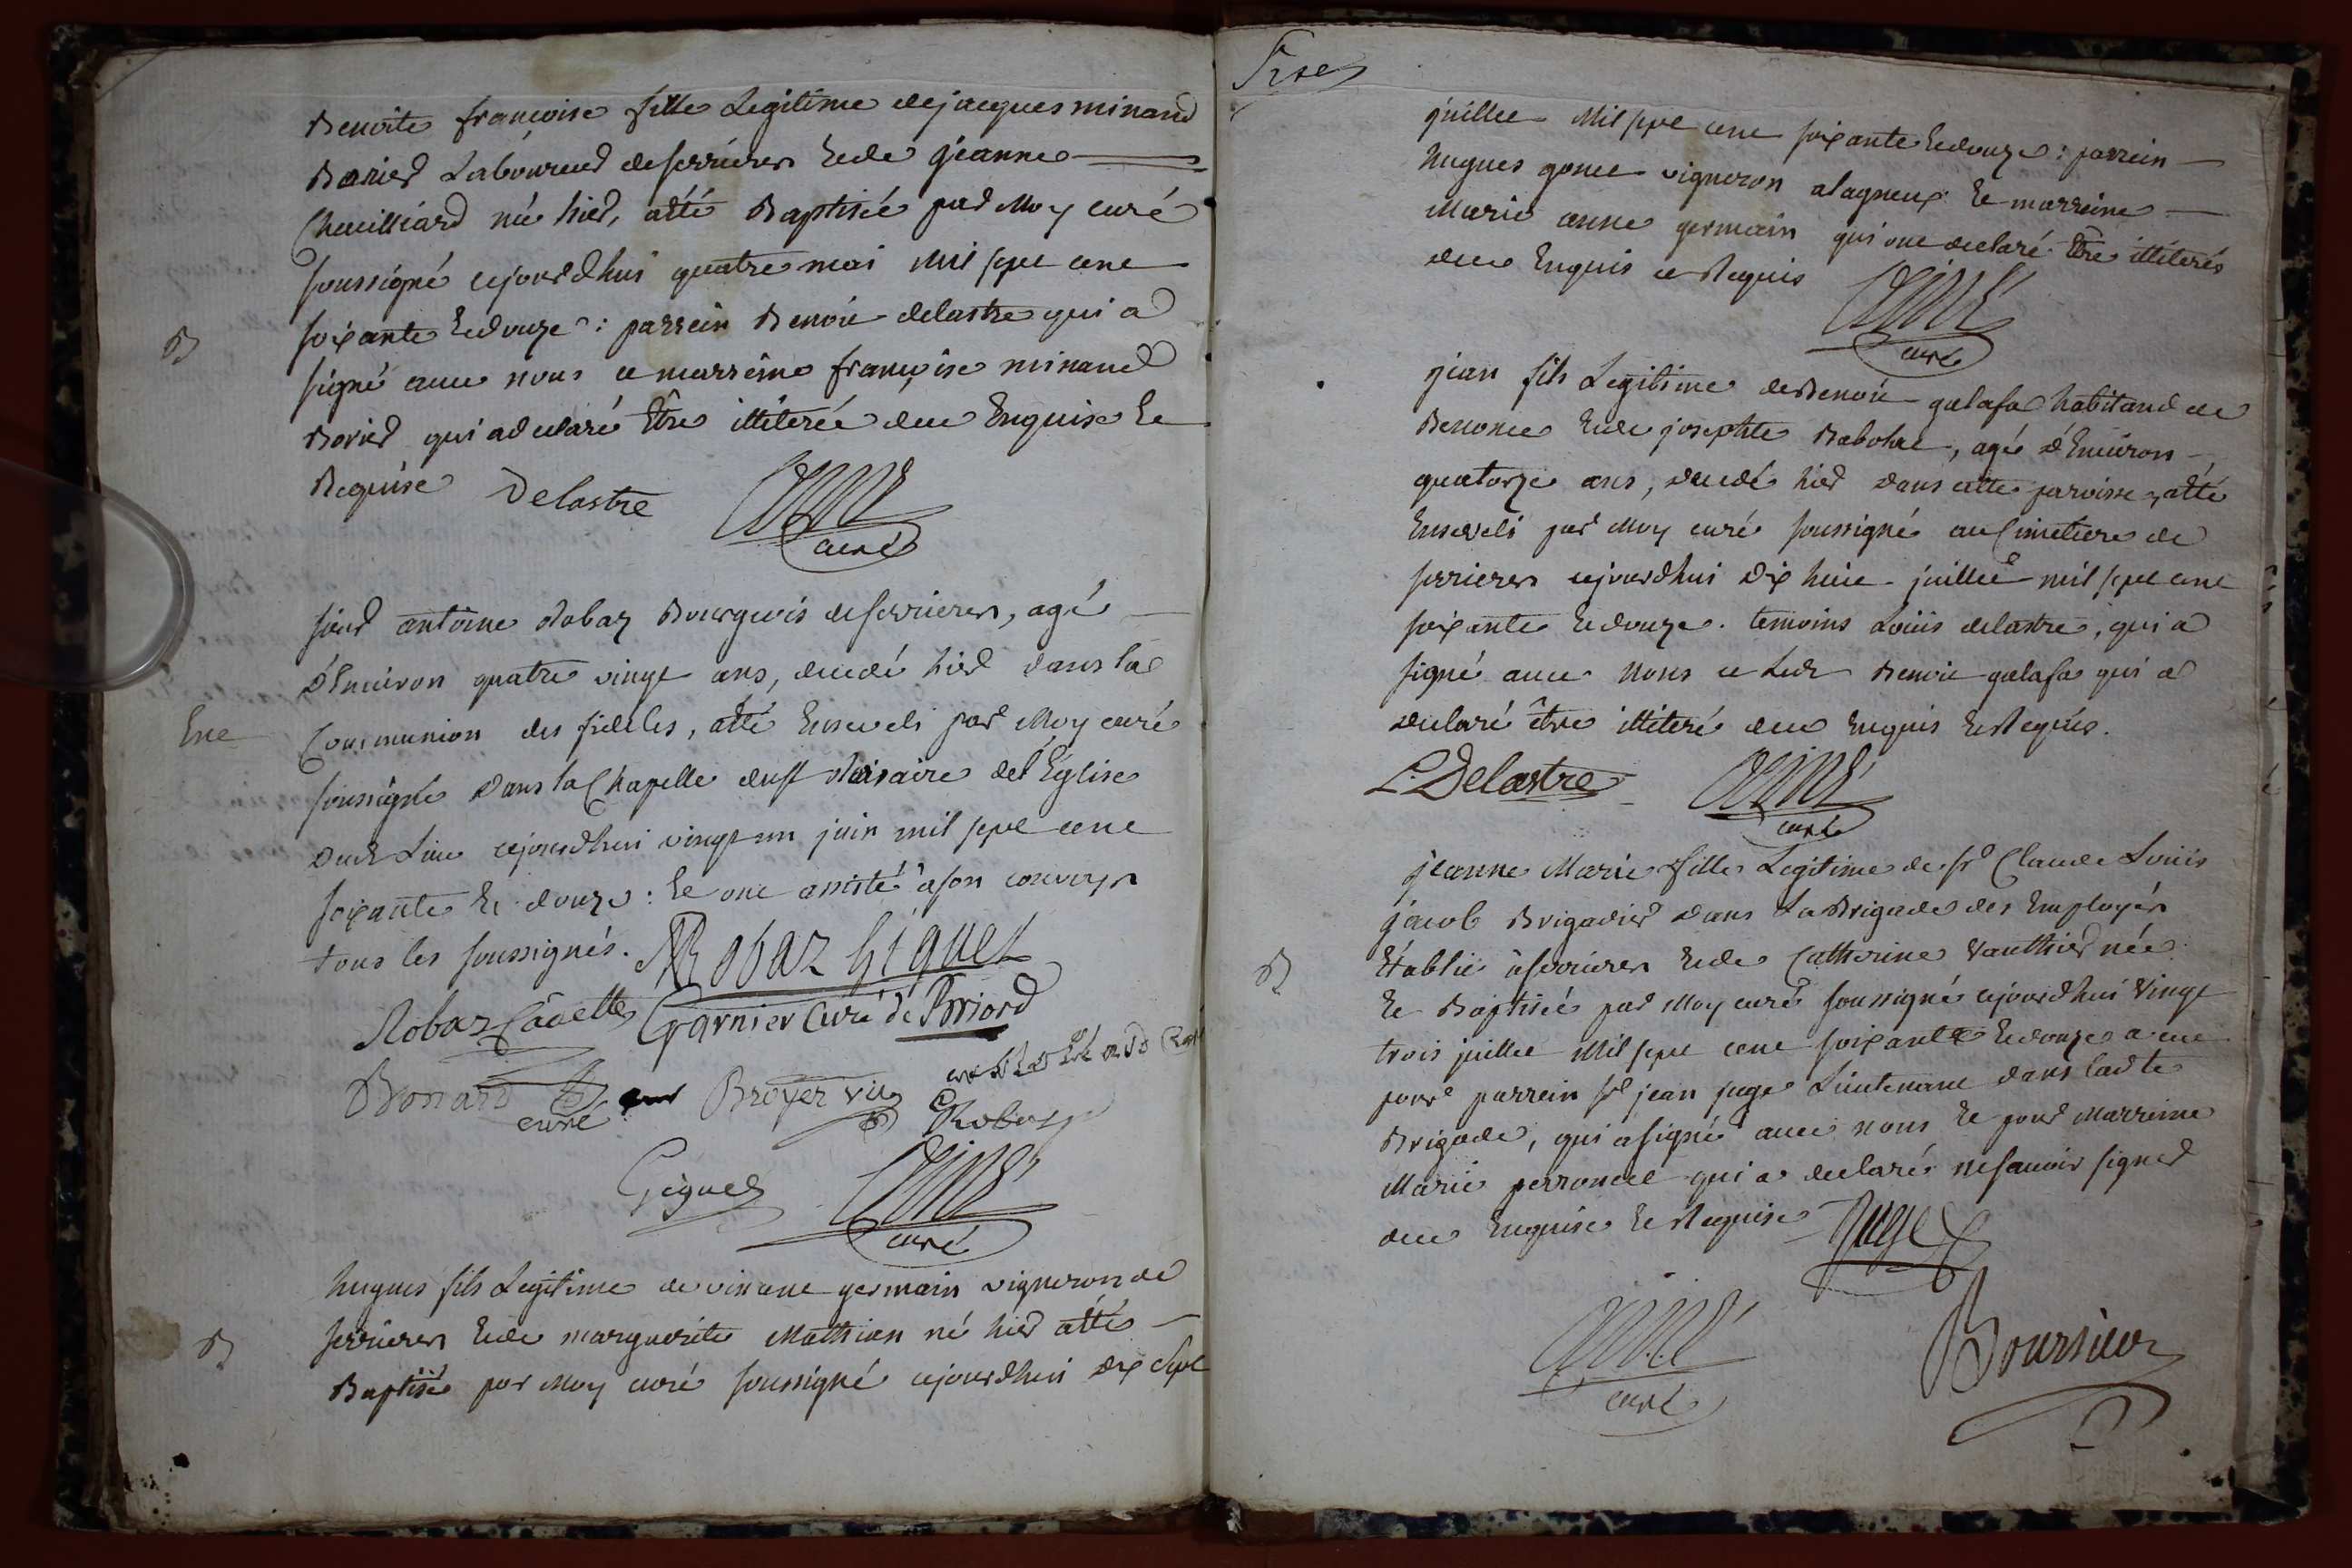 Benoite françoise fille Legitime de jacques minand
Borier Laboureur de serrieres Et de jeanne
Cheuilliard née hier, a été Baptisée par Moy curé
soussigné cejourdhui quatre mai Mil sept cent
B
soixante Et douze : parrein Benoit delastre qui a
signé avec nous et marreine françoise minand
Borier qui a declaré Etre illiterée de ce Enquise Et
Requise Delastre
curé
sieur antoine Robaz Bourgeois de serrieres, agé
d'Environ quatre vingt ans, decedé hier dans la
Ent
Communion des fideles, a été Enseveli par Moy curé
soussigné dans la Chapelle du st Rosaire de l'Eglise
dudt Lieu cejourdhui vingt un juin mil sept cent
soixante Et douze : Et ont assisté a son convoy
tous les soussignés. Robaz Giguet
Robaz Garnier Curé de Briord
Bonard curé Broyer vic
Robaz
Giguet
curé
hugues fils Legitime de vincent germain vigneron de
serrieres Et de marguerite Mathian né hier a été
B
Baptisé par Moy curé soussigné cejourdhui dix sept
juillet Mil sept cent soixante Et douze : parrein
hugues gonet vigneron a lagneux Et marreine
Marie anne germain qui ont declaré Etre illiterés
de ce Enquis et Requis
curé
jean fils Legitime de Benoit galafa habitant de
Benonce Et de josephte Babolat, agé d'Environ
quatorze ans, decedé hier dans cette paroisse, a été
Enseveli par Moy curé soussigné au Cimetiere de
serrieres cejourdhui dix huit juillet mil sept cent
soixante Et douze. temoins Loüis delastre, qui a
signé avec nous et ledt Benoit galafa qui a
declaré être illiteré de ce Enquis Et Requis.
L. Delastre
curé
jeanne Marie fille Legitime de sr Claude Loüis
jacob Brigadier dans La Brigade des Employés
B
Etablie a serrieres Et de Catherine Vauthier née
Et Baptisée par Moy curé soussigné cejourdhui Vingt
trois juillet Mil sept cent soixante Et douze a eut
pour parrein sr jean juge Lieutenant dans ladte
Brigade, qui a signé avec nous Et pour Marreine
Marie perroncel qui a declaré ne sauoir signer
de ce Enquise Et Requise Juge
curé
Boursier